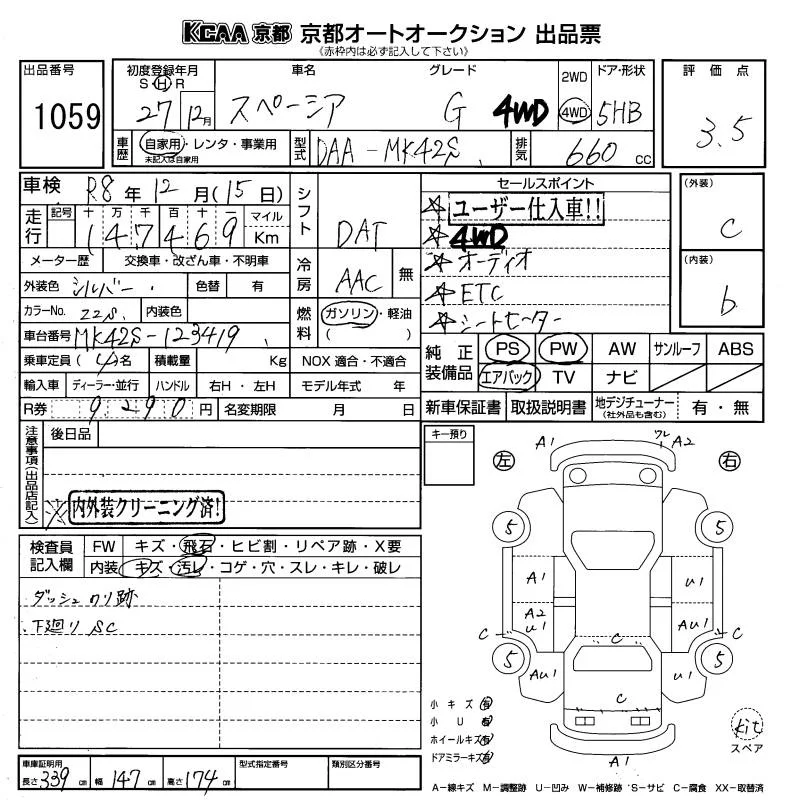 KCAA 京都 京都オートオークション 出品票
《赤枠内は必ず記入して下さい》
出品番号
1059
初度登録年月
S H R
27 12月
車名
スペーシア
グレード
G 4WD
2WD
4WD
ドア・形状
5HB
評価点
3.5
車歴
自家用・レンタ・事業用
未記入は自家用
型式
DAA-MK42S
排気
660 cc
車検 R8年 12月(15日)
走行
記号 十 万 千 百 十 一
147469
マイル
Km
シフト
DAT
メーター歴 交換車・改ざん車・不明車
外装色 シルバー 色替 有
冷房
AAC 無
カラーNo. Z2S 内装色
車台番号 MK42S-123419
燃料
ガソリン・軽油
( )
乗車定員 (4)名 積載量 Kg NOX 適合・不適合
輸入車 ディーラー・並行 ハンドル 右H・左H モデル年式 年
R券 9290円 名変期限 月 日
セールスポイント
☆ ユーザー仕入車!!
☆ 4WD
☆ オーディオ
☆ ETC
☆ シートヒーター
(外装)
C
(内装)
b
純正装備品
PS PW AW サンルーフ ABS
エアバック TV ナビ
新車保証書 取扱説明書 地デジチューナー(社外品も含む) 有・無
注意事項(出品店記入)
後日品
※内外装クリーニング済!
キー預り
検査員記入欄
FW キズ・飛石・ヒビ割・リペア跡・X要
内装 キズ・汚レ・コゲ・穴・スレ・キレ・破レ
ダッシュ ノリ跡
下廻り SC
左 右
A1 ワレ A2
5 5
A1 U1
A2 U1 AU1
C C C
5 5
AU1 U1
C
A1
小キズ 有
小 U 有
ホイールキズ 有
ドアミラーキズ 有
kit
スペア
車庫証明用
長さ 339 cm 幅 147 cm 高さ 174 cm
型式指定番号
類別区分番号
A-線キズ M-調整跡 U-凹み W-補修跡 S-サビ C-腐食 XX-取替済